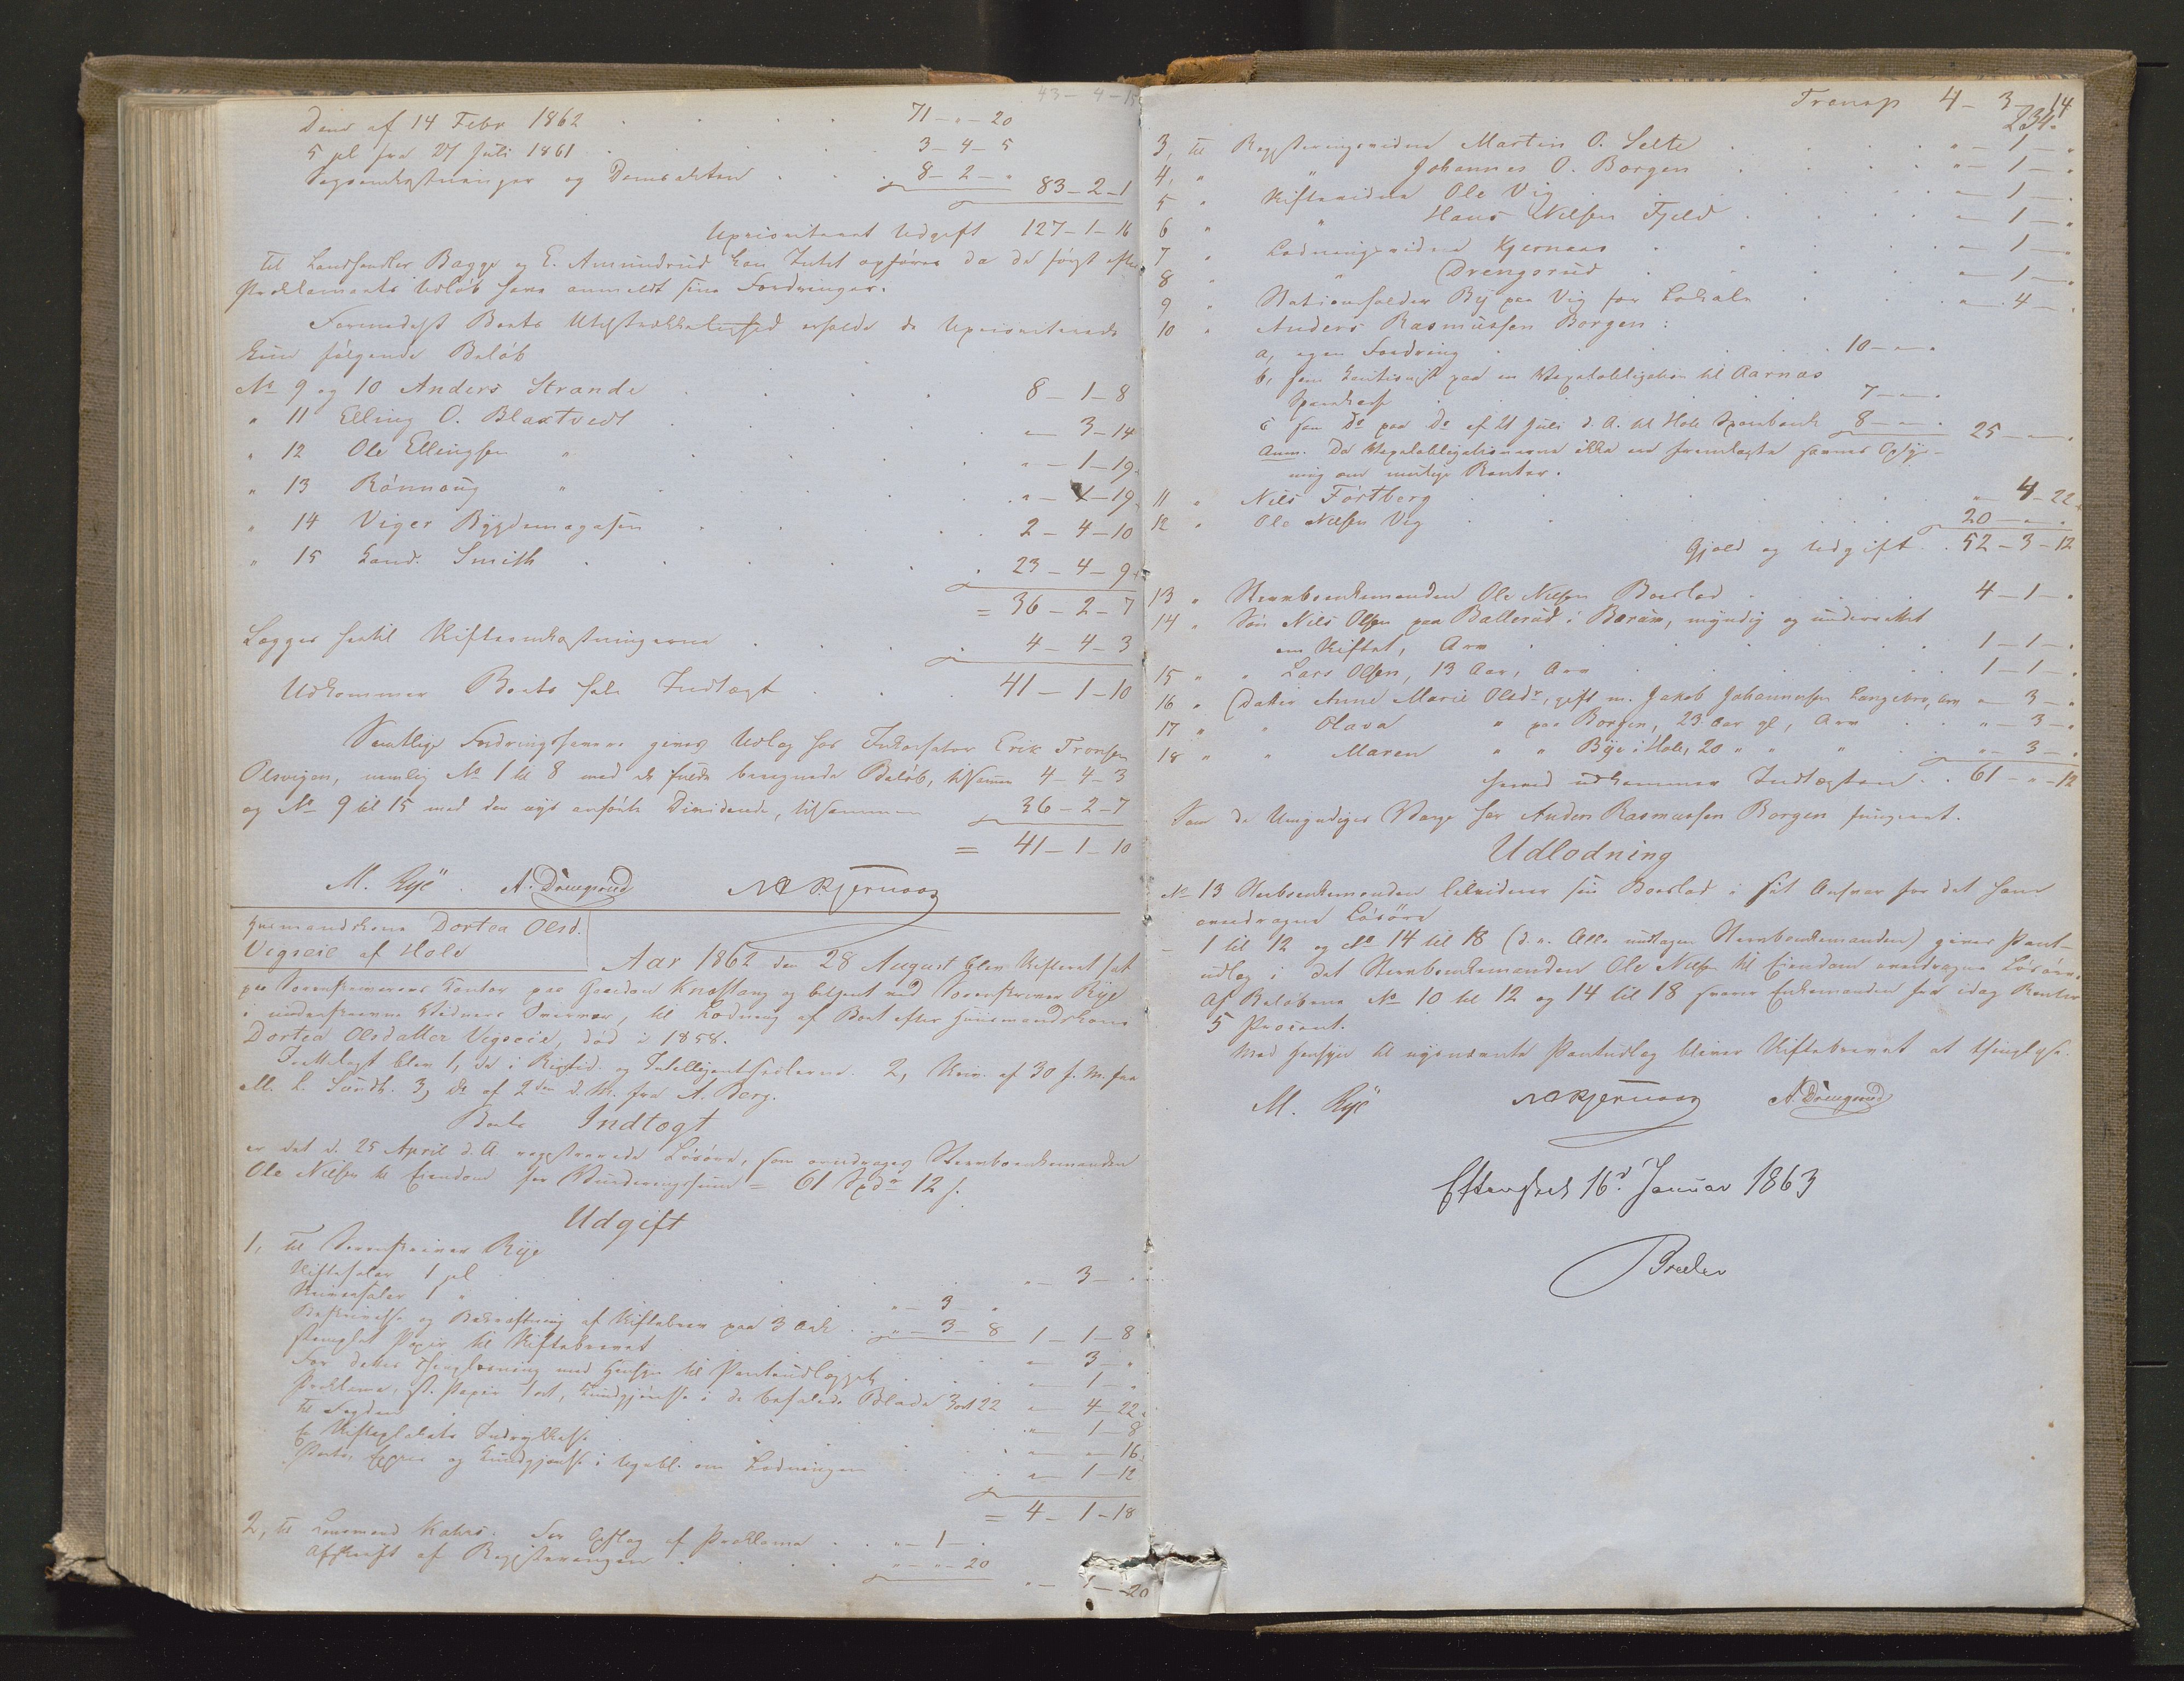 43 - 4 - 15
Dom af 14 Febr 1862 71 - " - 20
5 pC fra 27 Juli 1861 3 - 4 - 5
Sagsomkostninger og Domsakten 8 - 2 - " 83 - 2 - 1
Uprioriteret Udgift 127 - 1 - 16
Til Landhandler Bagge og E. Amundrud kan Intet opføres da de først efter
Proklamaets Udløb have anmeldt sine Fordringer.
Formedelst Boets Utilstrækkelighed erholde de Uprioriterede
kun følgende Beløb
No 9 og 10 Anders Strande 8 - 1 - 8
" 11 Elling O. Blaxtvedt " - 3 - 14
" 12 Ole Ellingsen " " - 1 - 19
" 13 Rønnaug " " - 1 - 19
" 14 Viger Bygdemagasin 2 - 4 - 10
" 15 Cand. Smith 23 - 4 - 9
= 36 - 2 - 7
Lægges hertil Skifteomkostningerne 4 - 4 - 3
Udkommer Boets hele Indtægt 41 - 1 - 10
Samtlige Fordringshavere gives Udlæg hos Inkassator Erik Tronsen
Olsvigen, nemlig No 1 til 8 med de fulde beregnede Beløb, tilsammen 4 - 4 - 3
og No 9 til 15 med den nys anførte Dividende, tilsammen 36 - 2 - 7
= 41 - 1 - 10
M. Rye A. Drengsrud Kjernaas
Huusmandskone Dortea Olsd.
Vigseie af Hole
Aar 1862 den 28 August blev Skifteret sat
paa Sorenskriverens Kontor paa Gaarden Knestang og betjent ved Sorenskriver Rye
i underskrevne Vidners Overvær, til Lodning af Boet efter Huusmandskone
Dortea Olsdatter Vigseie, død i 1858.
Fremlagt blev 1, da i Rigstid. og Intelligentssedlerne. 2, Skriv. af 30 f. M. fra
L. Sundt. 3, do af 2den d. M. fra A. Berg.
Boets Indtægt
er det d. 25 April d. A. registrerede Løsøre, som overdrages Stervboenkemanden
Ole Nilsen til Eiendom for Vurderingssum = 61 Spdr 12 s.
Udgift
1, til Sorenskriver Rye
Skiftesalær 1 pC " - 3 - "
Skriversalær 1 " " - 3 - "
Beskrivelse og Bekræftning af Skiftebrev paa 3 Ark " - 3 - 8 1 - 1 - 8
stemplet Papir til Skiftebrevet " - 3 - "
For dettes Thinglæsning med Hensyn til Pantudlægget " - 1 - "
Proklama, st. Papir 1 ort, Kundgjørelse i de befalede Blade 3 ort 22 " - 4 - 22
til Fogden " - 1 - 8
Skifteplakats Indrykkelse " - " - 16
Porto, Expres og Kundgjørelse i Ugebl. om Lodningen " - 1 - 12
= 4 - 1 - 18
2, til Lensmand Kahrs. For Opslag af Proklama " - 1 - "
Afskrift af Registreringen " - " - 20
" - 1 - 20
Transp 4 - 3 - 14
234.
3, til Registreringsvidne Martin O. Selte " - 1 - "
4, " " Johannes O. Borgen " - 1 - "
5 " Skiftevidne Ole Vig " - 1 - "
6 " " Hans Nilsen Fjeld " - 1 - "
7 " Lodningsvidne Kjernaas " - 1 - "
8 " " Drengsrud " - 1 - "
9 " Stationsholder By paa Vig for Lokale " - 4 - "
10 " Anders Rasmussen Borgen:
a, egen Fordring 10 - " - "
b, som Kautionist paa en Vexelobligation til Aarnæs
Sparekasse 7 - " - "
c som Do paa Do af 21 Juli d. A. til Hole Sparebank 8 - " - " 25 - " - "
Anm. Da Vexelobligationerne ikke ere fremlagte savnes Oplys-
ning om mulige Renter.
11 " Nils Førtberg " - 4 - 22
12 " Ole Nilsen Vig 20 - " - "
Gjæld og Udgift 52 - 3 - 12
13 " Stervboenkemanden Ole Nilsen Boeslod 4 - 1 - "
14 " Søn Nils Olsen paa Ballerud i Bærum, myndig og underrettet
om Skiftet, Arv 1 - 1 - "
15 " " Lars Olsen, 13 Aar, Arv 1 - 1 - "
16 " Datter Anne Marie Olsdr, gift m. Jakob Johannesen Langebro, Arv " - 3 - "
17 " " Olava " paa Borgen, 23 Aar gl, Arv " - 3 - "
18 " " Maren " " Bye i Hole, 20 " " " " - 3 - "
hvorved udkommer Indtægten 61 - " - 12
Som de Umyndiges Værge har Anders Rasmussen Borgen fungeret.
Udlodning
No 13 Stervboenkemanden likviderer sin Boeslod i sit Ansvar for det ham
overdragne Løsøre
- 1 til 12 og No 14 til 18 (d. e. Alle undtagen Stervboenkemanden) gives Pant-
udlæg i det Stervboenkemanden Ole Nilsen til Eiendom overdragne Løsøre.
Af Beløbene No 10 til 12 og 14 til 18 svarer Enkemanden fra idag Renter
5 Procent.
Med Hensyn til nysnævnte Pantudlæg bliver Skiftebrevet at thinglyse.
M. Rye Kjernaas A. Drengsrud
Efterseet 16d Januar 1863